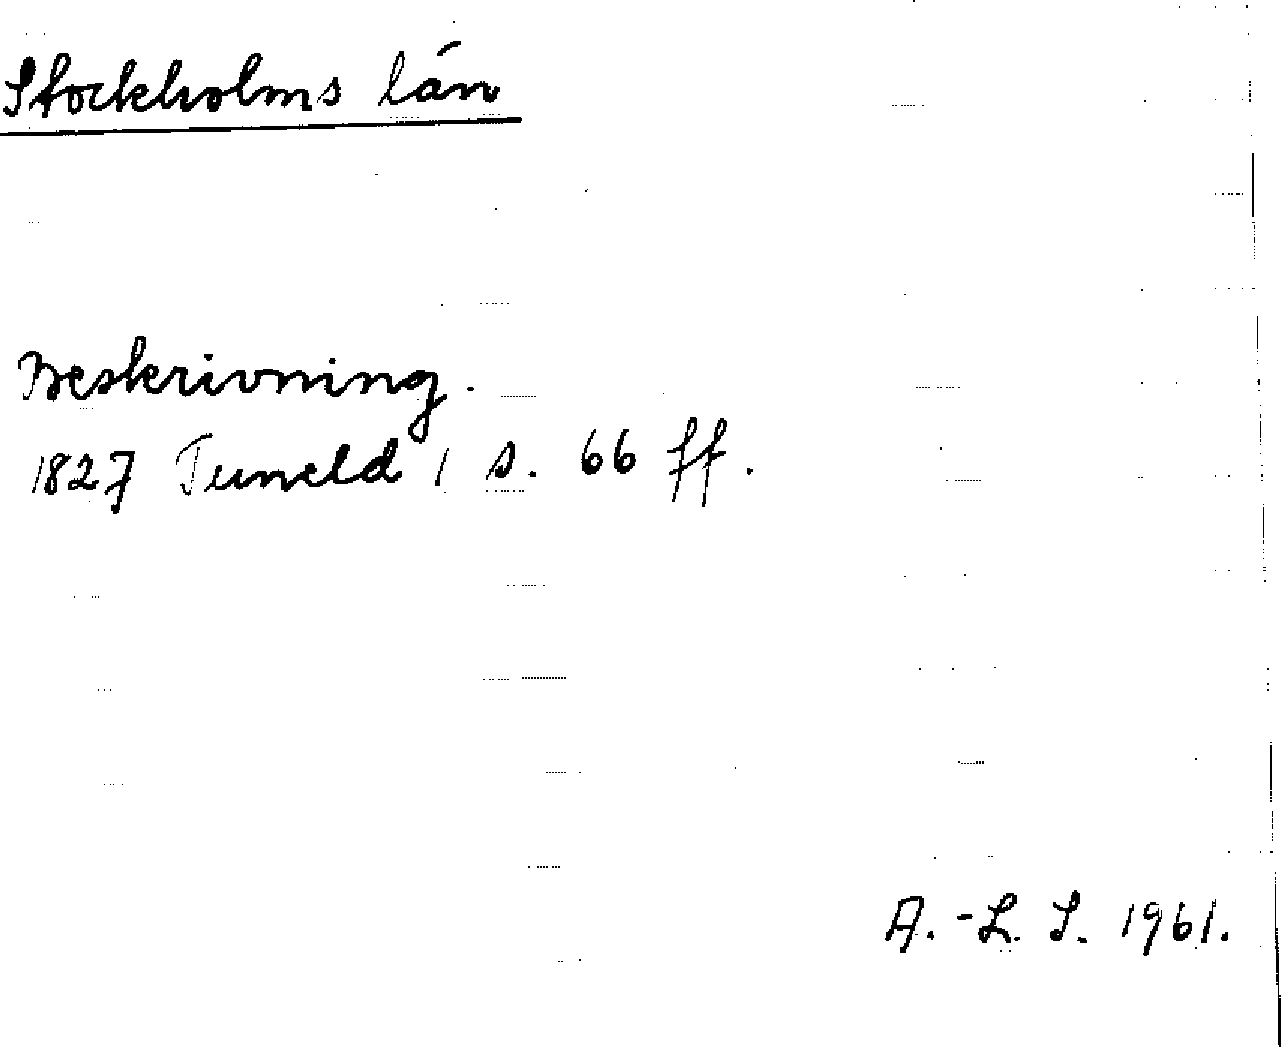 Stockholms län
Beskrivning.
1827 Tuneld 1 s. 66 ff.
A.-L. S. 1961.